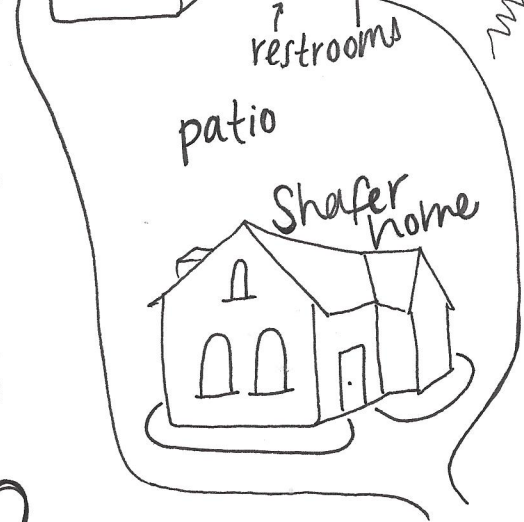 restrooms
patio
Shafer
home